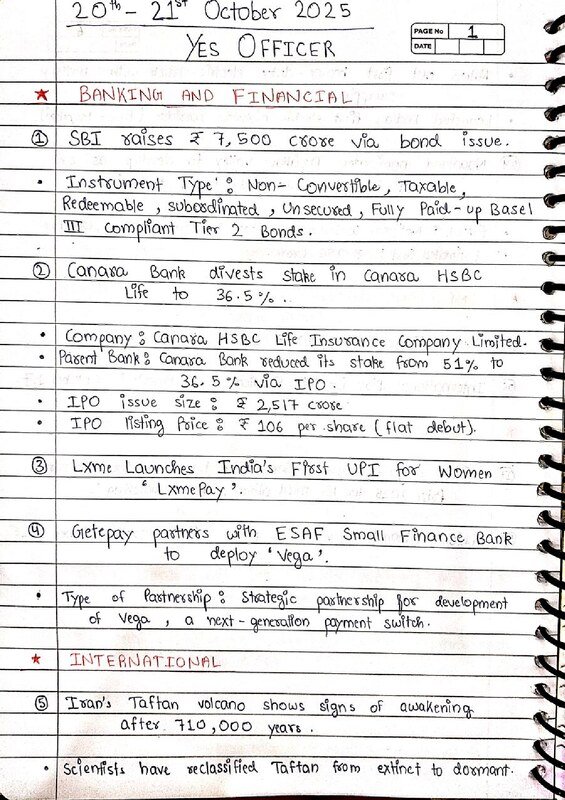 20th - 21st October 2025
PAGE No 1
DATE
YES OFFICER
★ BANKING AND FINANCIAL
① SBI raises ₹ 7,500 crore via bond issue.
• Instrument Type : Non-Convertible, Taxable,
Redeemable, subordinated, Unsecured, Fully Paid-up Basel
III compliant Tier 2 Bonds.
② Canara Bank divests stake in Canara HSBC
Life to 36.5%.
• Company : Canara HSBC Life Insurance Company Limited.
• Parent Bank : Canara Bank reduced its stake from 51% to
36.5% via IPO.
• IPO issue size : ₹ 2,517 crore
• IPO listing Price : ₹ 106 per share (flat debut).
③ Lxme Launches India's First UPI for Women
'LxmePay'.
④ Getepay partners with ESAF Small Finance Bank
to deploy 'Vega'.
• Type of Partnership : Strategic partnership for development
of Vega, a next-generation payment switch.
★ INTERNATIONAL
⑤ Iran's Taftan volcano shows signs of awakening
after 710,000 years.
• Scientists have reclassified Taftan from extinct to dormant.